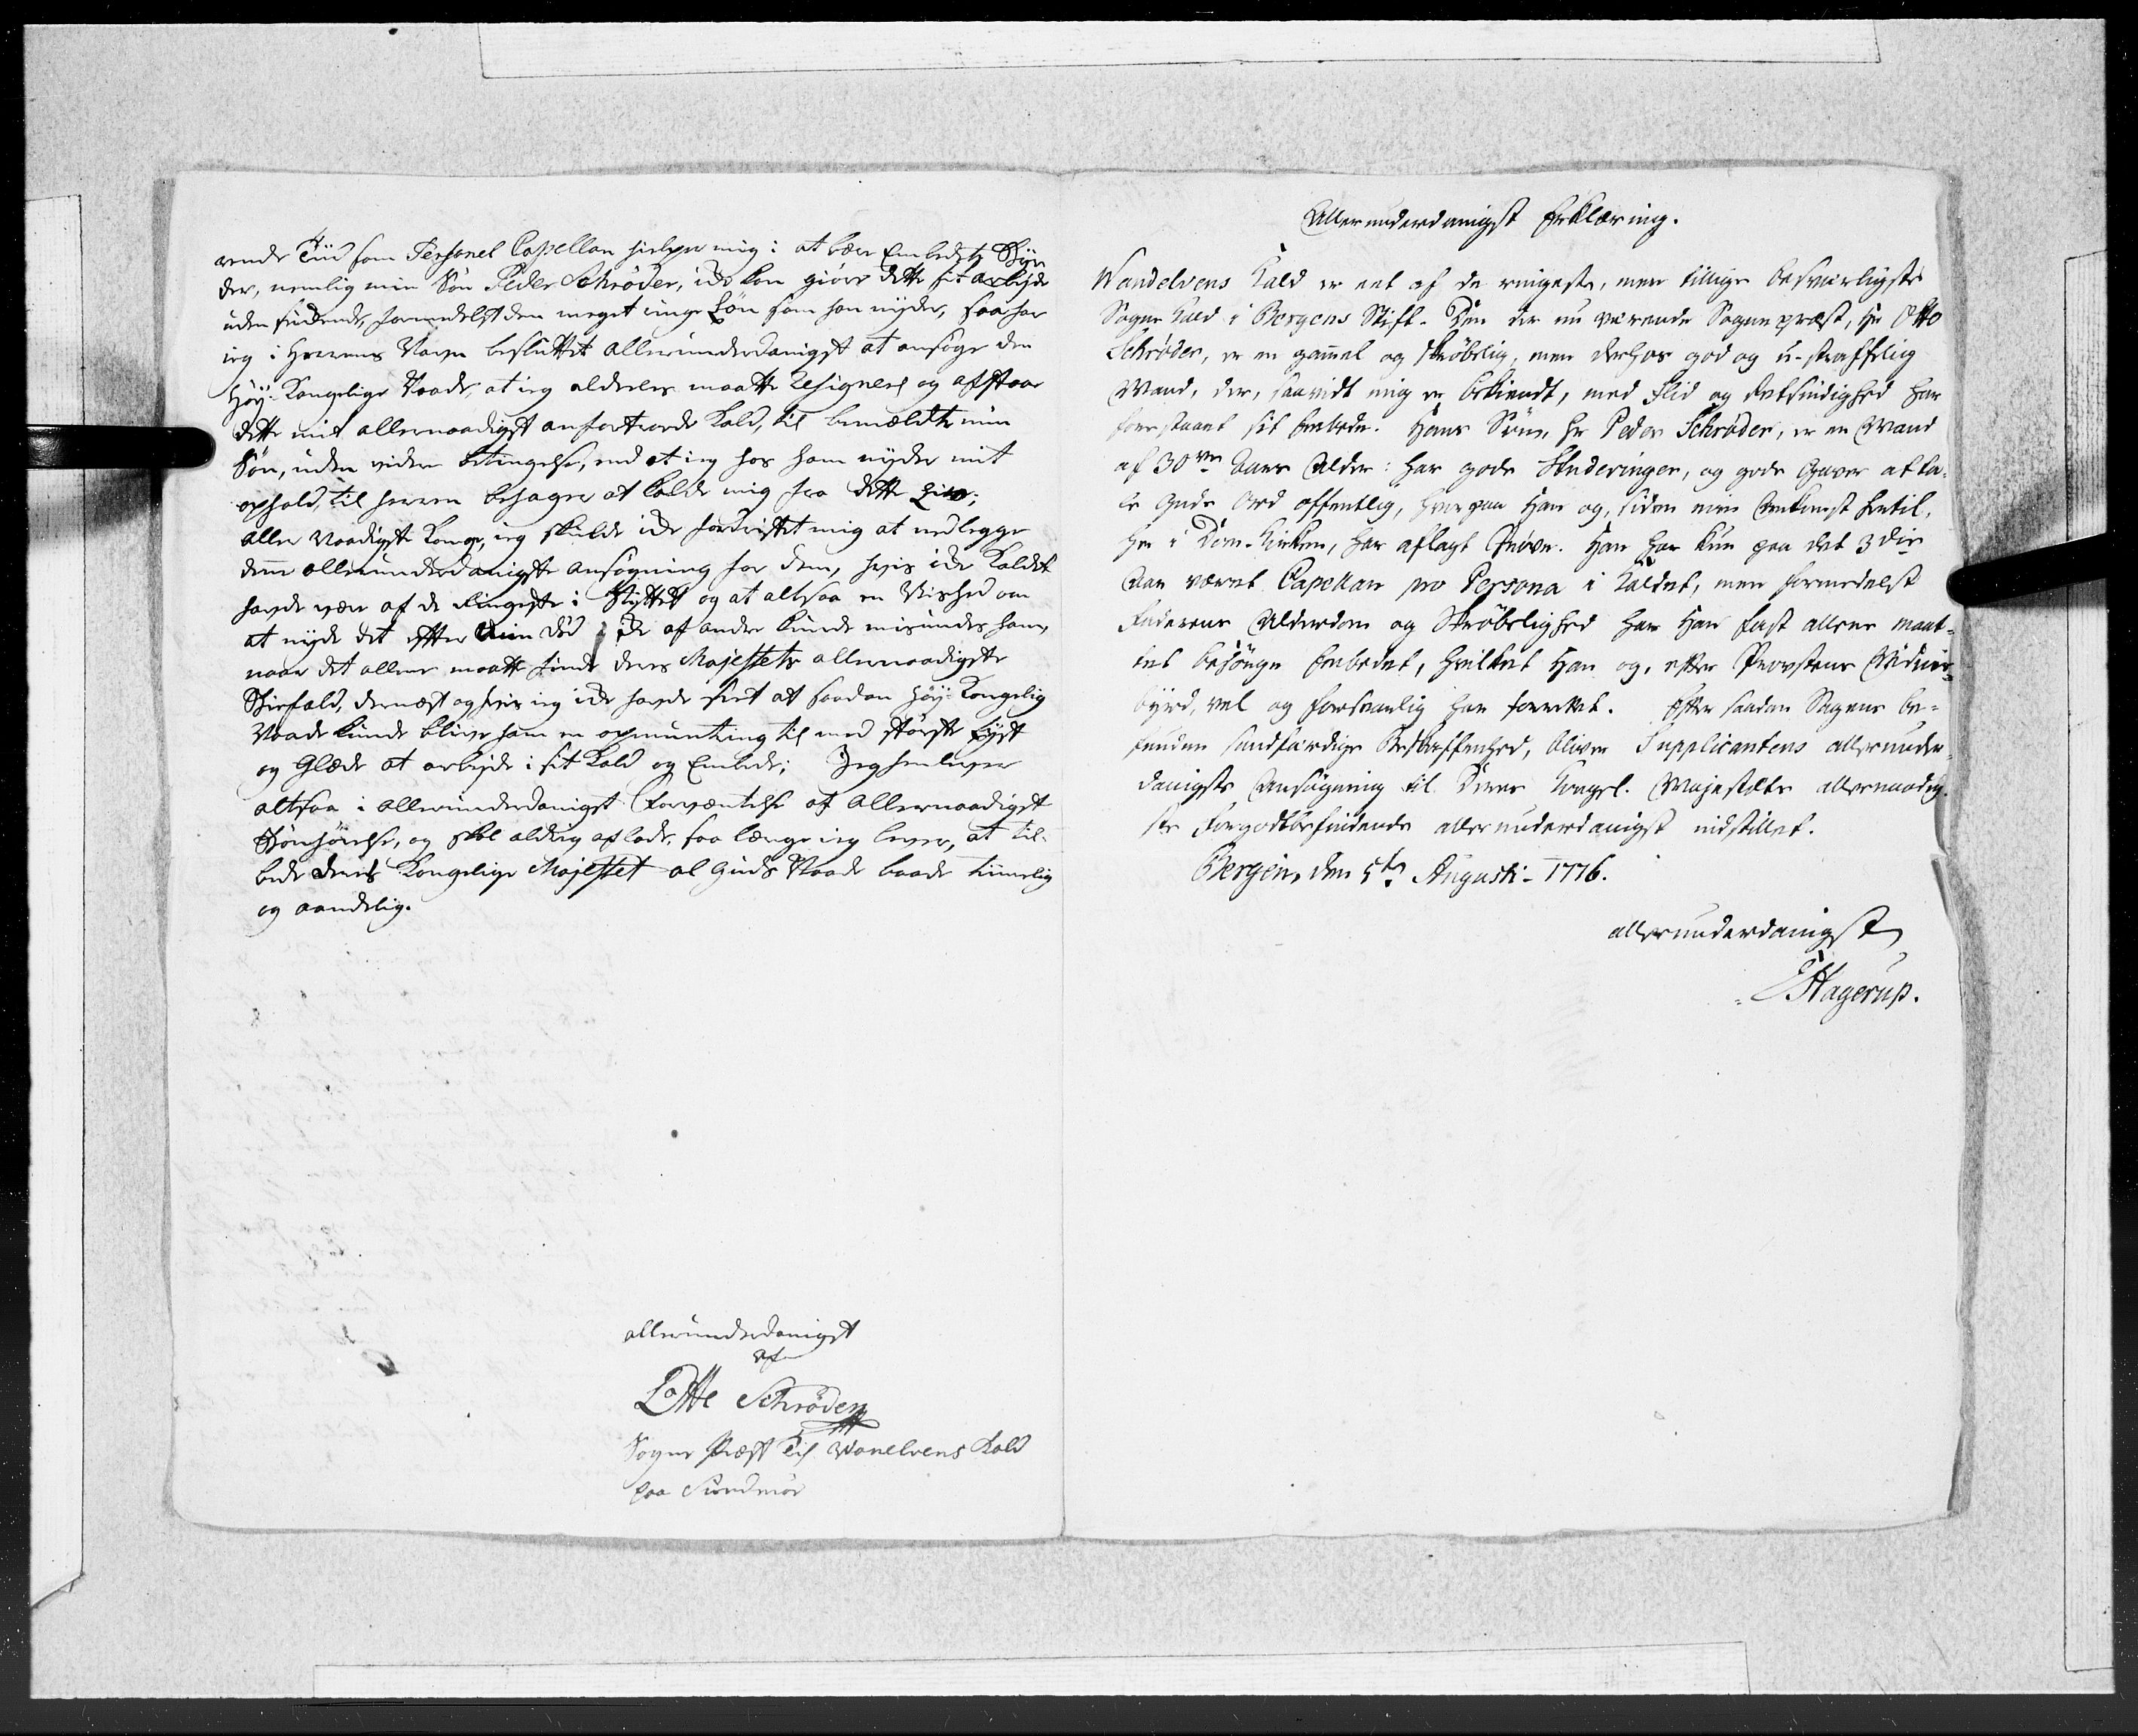 rende Tiid som Personel Capellan hielper mig i at bære Embedets Byr
der, nemlig min Søn Peder Schrøder, icke kan giøre dette sit arbejde
uden suckende, formedelst den meget ringe Løn som han nyder, saa har
ieg i Herrens Navn besluttet allerunderdanigst at ansøge den
Høy-Kongelige Naade, at ieg alderles maatte Resignere og afstaae
dette mit allernaadigst anfortroede Kald, til bemældte min
Søn, uden viden betingelse, end at ieg hos ham nyder mit
ophold, til herren behager at kalde mig fra dette Liv;
Aller Naadigste Konge, ieg skulde icke fordristet mig at nedlegge
denne allerunderdanigste ansøgning for dem, hvis icke Kaldet
havde være af de Ringeste i Stiftet og at altsaa en Vished om
at nyde det efter min død icke af andre kunde misundes ham,
naar det allene maatte finde deres Majestets allernaadigste
Biefald, dernæst og hvis ieg icke havde seet at saadan Høy-Kongelig
Naade kunde blive ham en opmuntring til med største Lyst
og Glæde at arbejde i sit Kald og Embede; Jeg henlever
altsaa i allerunderdanigst Forventelse af allernaadigst
Bønhørelse, og skal aldrig aflade, saa længe ieg lever, at til-
bede deres Kongelige Majestet al Guds Naade baade timelig
og aandelig.
allerunderdanigst
af
Otte Schrøder
Sogne Præst til Wanelvens Kald
paa Sundmør
Allerunderdanigst Erklæring.
Wandelvens Kald er eet af de ringeste, men tillige besværligste
Sogne Kald i Bergens Stift. Den der nu værende Sognepræst, Hr Otto
Schrøder, er en gammel og skrøbelig, men derhos god og u-straffelig
Mand, der, saavidt mig er bekiendt, med Flid og Retsindighed har
forestaaet sit Embede. Hans Søn, Hr Peder Schrøder, er en Mand
af 30ve Aars Alder: har gode Studeringer, og gode Gaver at ta-
le Guds Ord offentlig, hvorpaa Han og, siden min Ankomst hertil,
her i Dom-Kirken, har aflagt Prøve. Han har kun paa det 3die
Aar været Capellan pro Persona i Kaldet, men formedelst
Faderens Alderdom og Skrøbelighed har Han fast allene maat-
tet besørge Embedet, hvilket Han og, efter Provstens Vidnis-
byrd, vel og forsvarlig har forrettet. Efter saadan Sagens be-
fundne sandfærdige Beskaffenhed, bliver Supplicantens allerunder-
danigste Ansøgning til Deres Kongel. Majestæts allernaadig-
ste Forgodtbefindende allerunderdanigst indstillet.
Bergen, den 5te Augusti - 1776.
allerunderdanigst
E Hagerup.